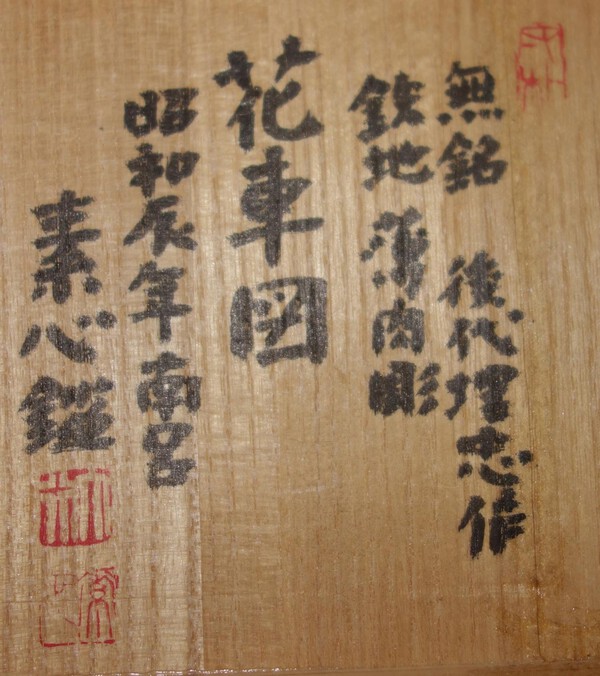 無銘 後代埋忠作
鉄地 薄肉彫
花車図
昭和辰年南呂
素心鑑